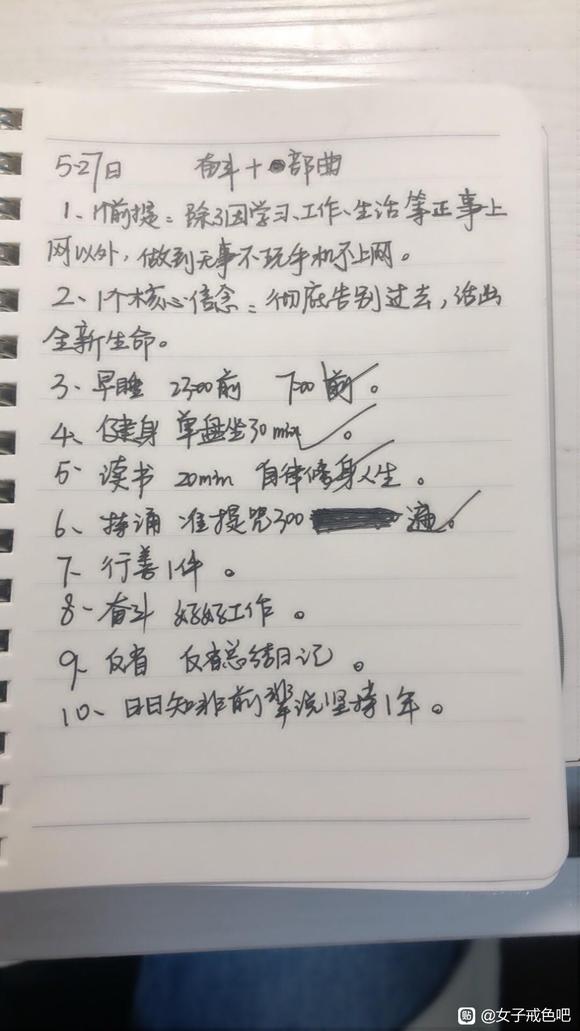 5.27日 奋斗十部曲
1、1个前提：除了因学习、工作、生活等正事上
网以外，做到无事不玩手机不上网。
2、1个核心信念：彻底告别过去，活出
全新生命。
3、早睡 23:00前 7:00前。
4、健身 单盘坐30min。
5、读书 20min 自律修身人生。
6、持诵 准提咒300 遍。
7、行善1件。
8、奋斗 好好工作。
9、反省 反省总结日记。
10、日日知非前辈说坚持1年。
贴 @女子戒色吧